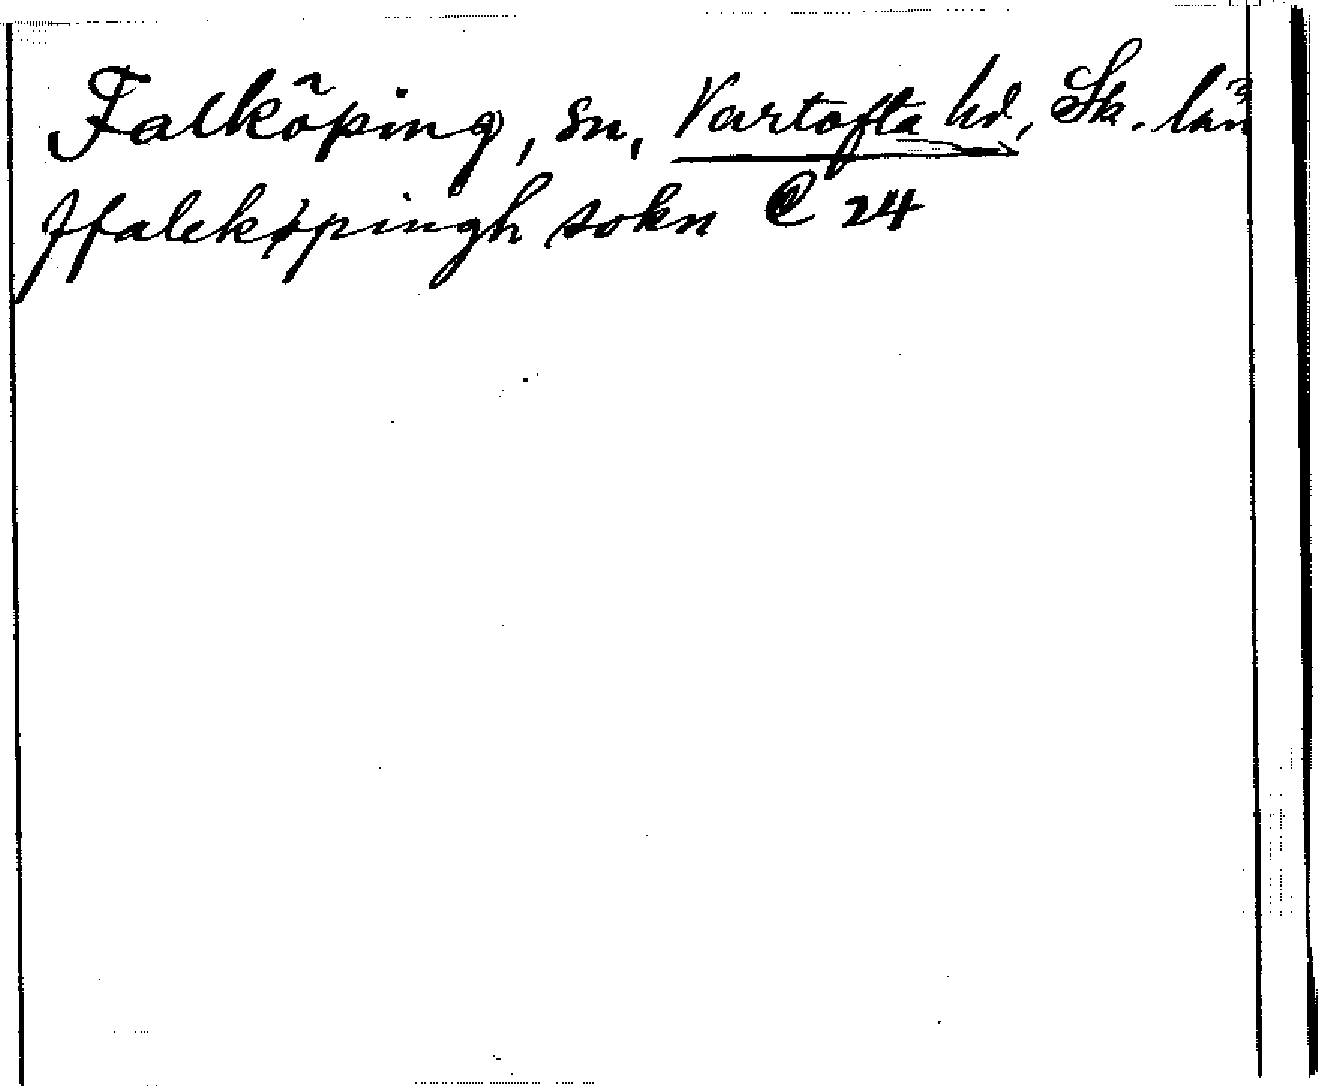 Falköping, sn, Vartofta hd, Sk. län
ffalekøpingh sokn C 24